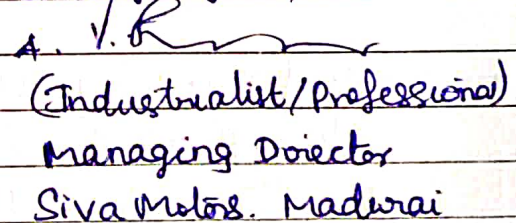 A. V. R
(Industrialist/Professional)
Managing Doiector
Siva Motors. Madurai